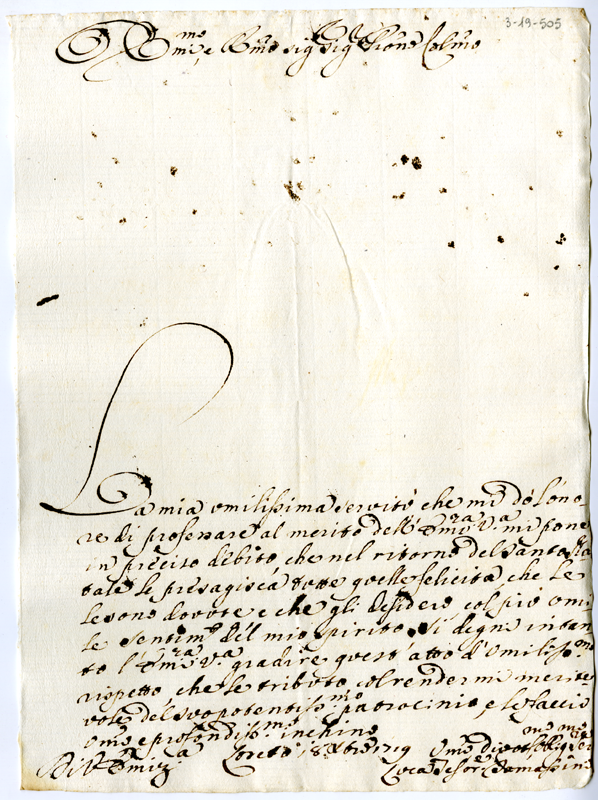 3-19-505
Em.mo e R.mo Sig.r Sig.r P'rone Col.mo
La mia umilissima servitù che mi dò l'ono
re di professare al merito dell' Em.za V.a mi pone
in preciso debito, che nel ritorno del Santo Na
tale le presagisca tutte quelle felicità, che le
sono dovute e che gli desidero col più umi
le sentim.to del mio spirito. Si degni intan
to l'Em.za V.a gradire quest'atto d'umiliss.mo
rispetto che le tributo col rendermi merite
vole del suo potentiss.mo patrocinio, e le faccio
um.e profondiss.mo inchino
Di V. Em.za Loreto 1719 Um.mo Div.mo Obblig.mo Ser.
Luca